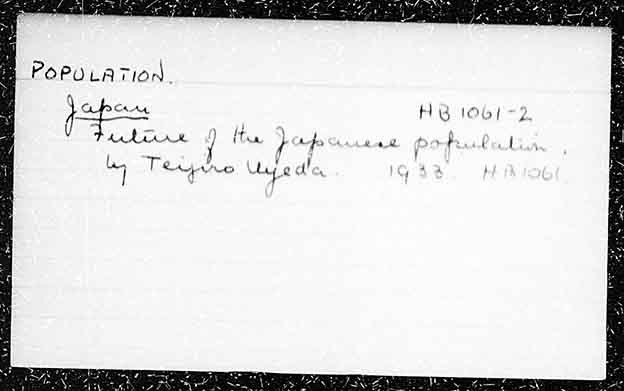 POPULATION.
Japan HB 1061-2
Future of the Japanese population.
by Teijiro Uyeda. 1933. HB 1061.